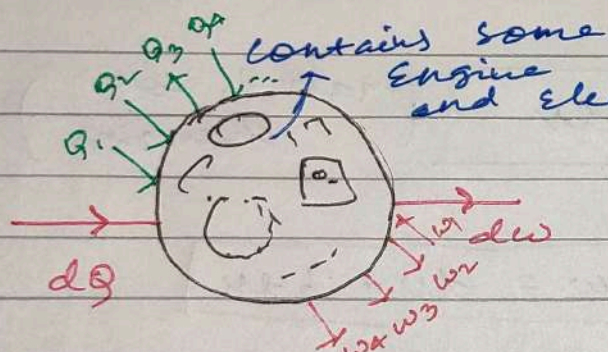 Q4
Q3
Q2
Q1
contains some
Engine
and Ele
dQ
dw
w1
w2
w3
w4